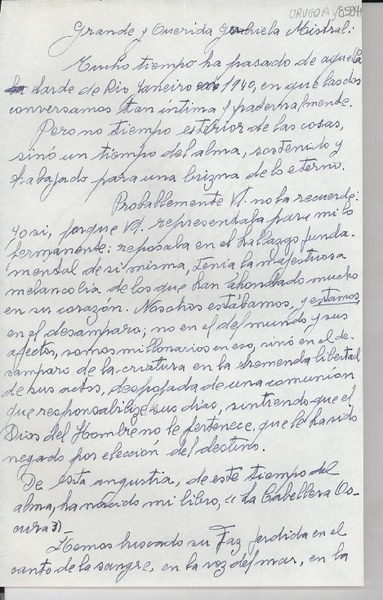 URUGUAY 85984
Grande y Querida Gabriela Mistral:
Mucho tiempo ha pasado de aquella
tarde de Rio Janeiro en 1940, en que las dos
conversamos tan íntima y fraternalmente.
Pero no tiempo exterior de las cosas,
sinó un tiempo del alma, sostenido y
trabajado para una brizna de lo eterno.
Probablemente Vd. no la recuerde:
yo sí, porque Vd. representaba para mí lo
permanente: reposaba en el hallazgo funda-
mental de sí misma, tenía la majestuosa
melancolía de los que han ahondado mucho
en su corazón. Nosotros estábamos, y estamos,
en el desamparo; no en el del mundo y sus
afectos, somos millonarios en eso, sinó en el de-
samparo de la criatura en la tremenda libertad
de sus actos, despojada de una comunión
que responsabilize sus días, sintiendo que el
Dios del Hombre no le pertenece, que le ha sido
negado por elección del destino.
De esta angustia, de este tiempo del
alma, ha nacido mi libro, "La Cabellera Os-
cura".
Hemos buscado su Faz perdida en el
canto de la sangre, en la voz del mar, en la